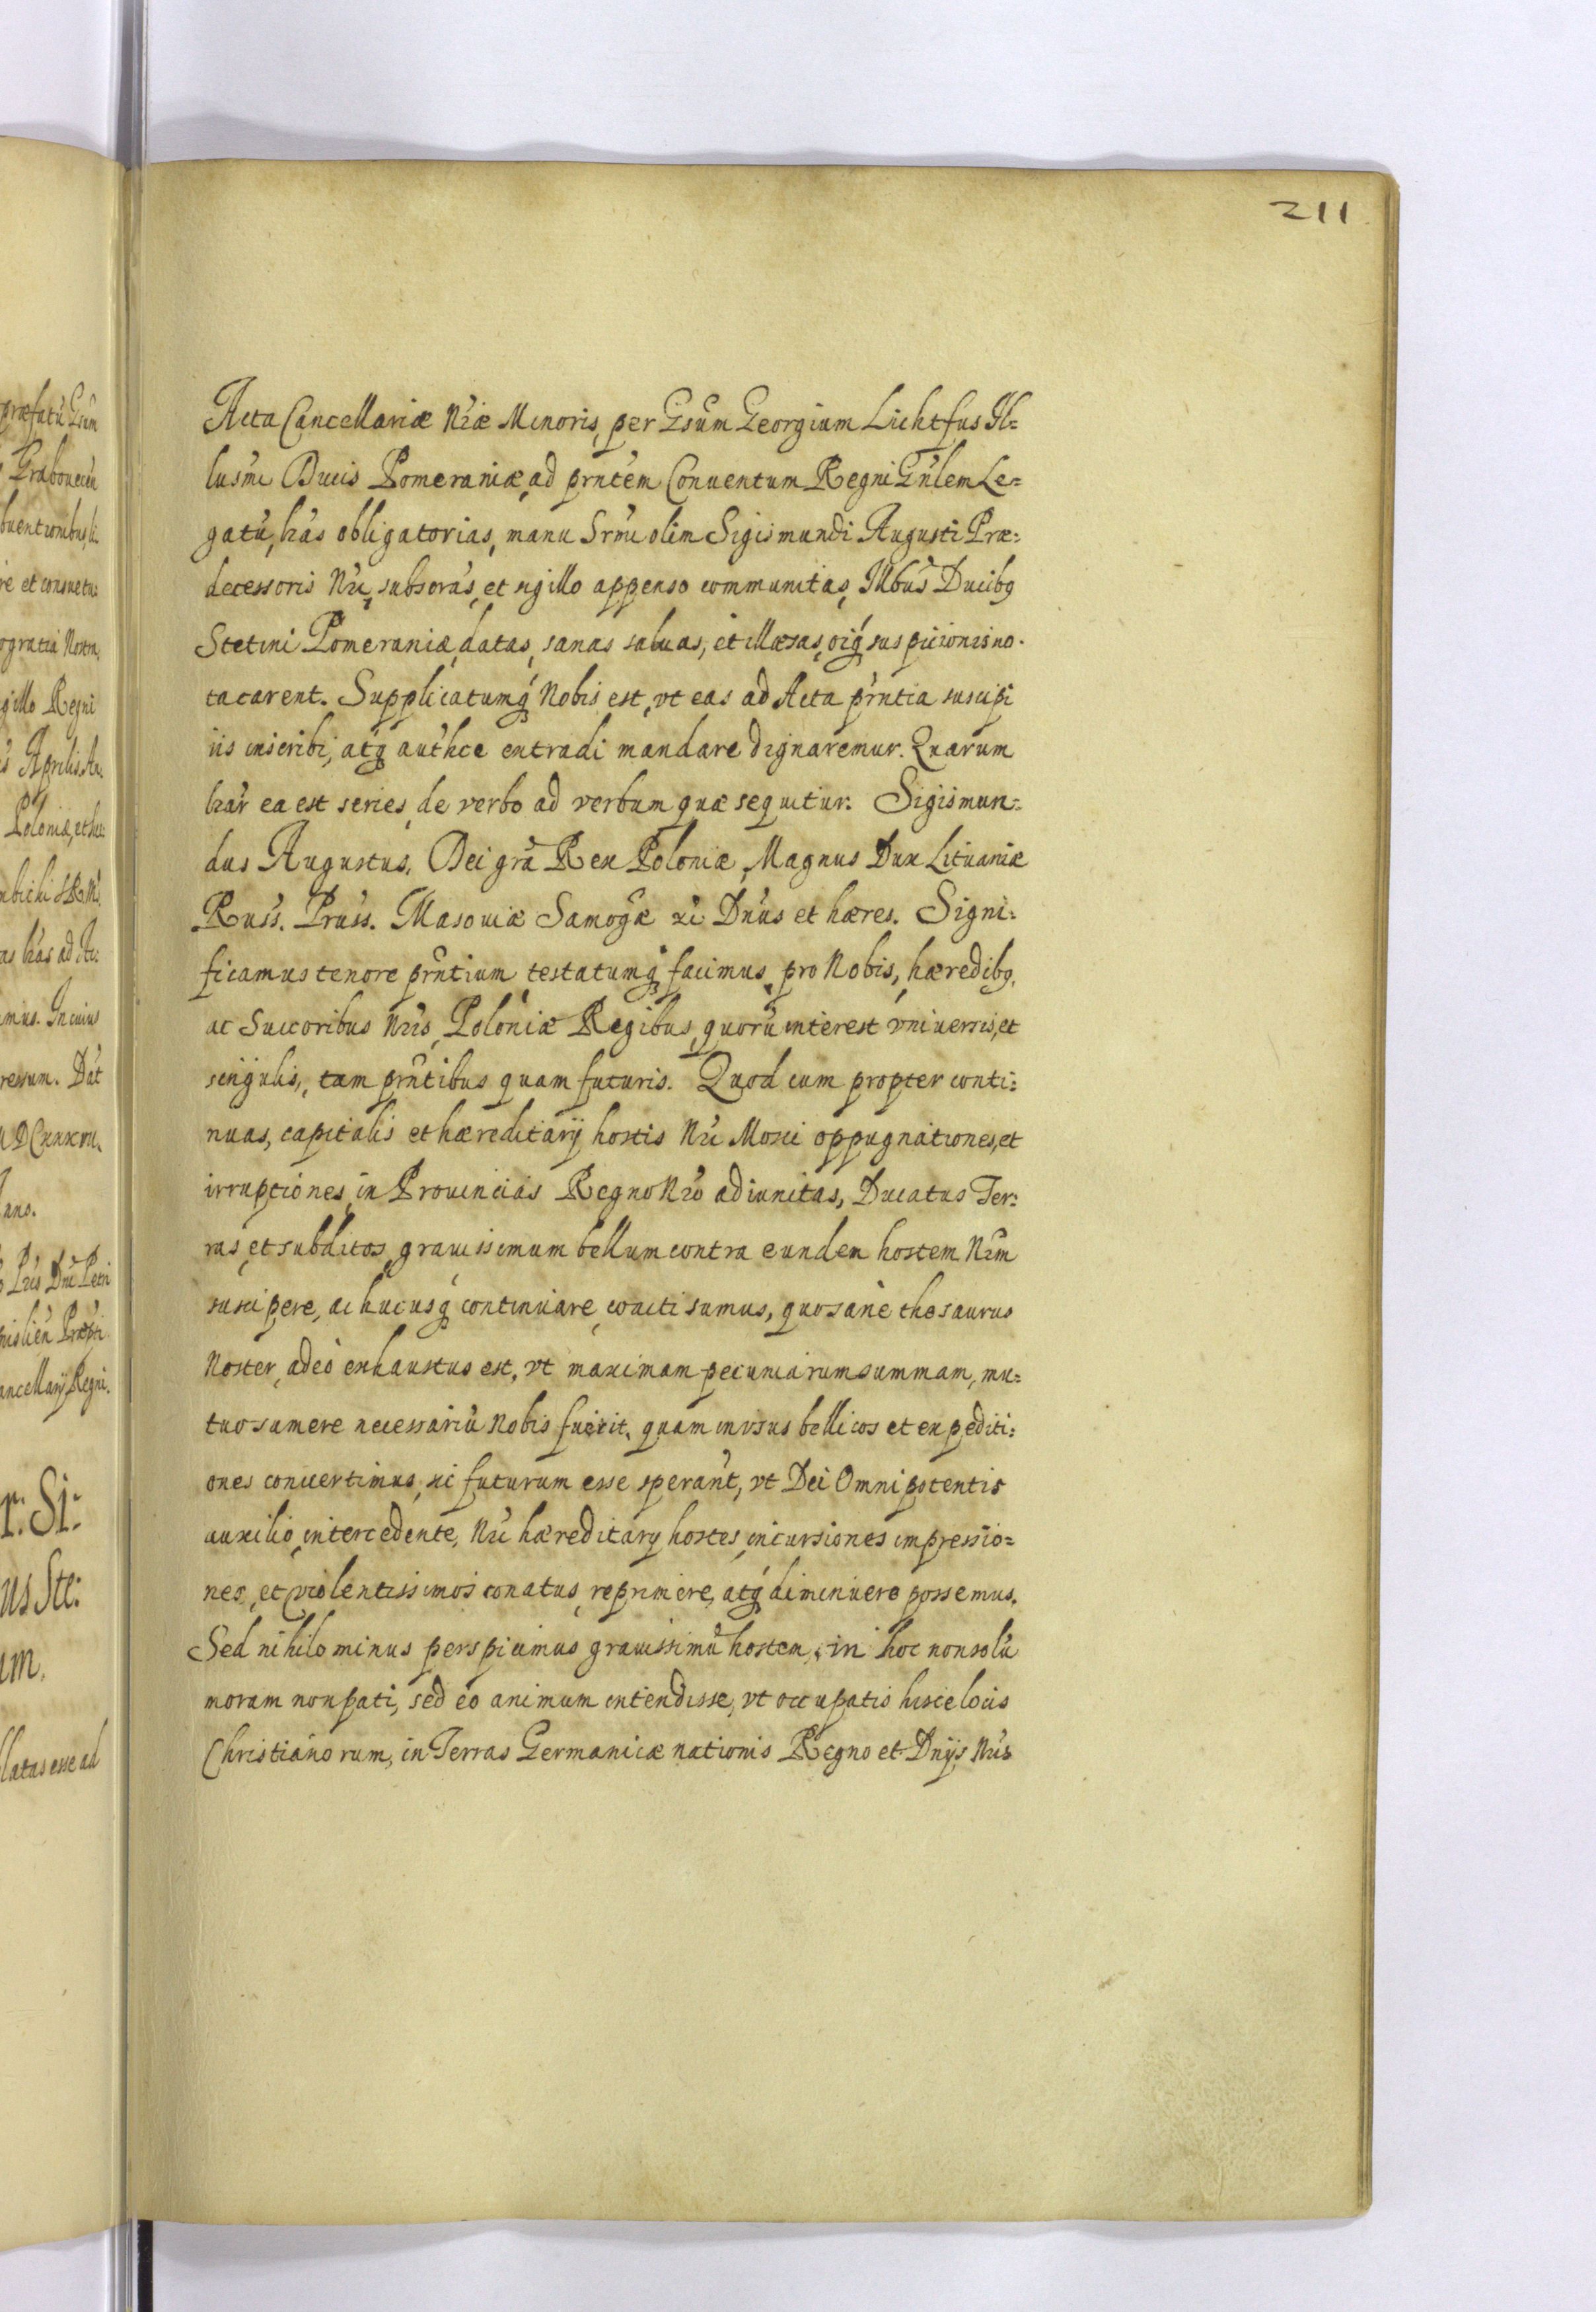 211
Acta Cancellariæ Nr̃æ Minoris, per Gsũm Georgium Lichtfus Il=
lusm̃i Ducis Pomeraniæ, ad prñtem Conuentum Regni Gñlem Le=
gatũ, lr̃as obligatorias, manu Srm̃i olim Sigismundi Augusti Præ:
decessoris Nr̃i, subscr̃as, et sigillo appenso communitas, Illbũs Ducibq
Stetini Pomeraniæ, datas, sanas saluas, et illæsas, oĩq́ suspicionis no.
ta carent. Supplicatumq́ Nobis est, vt eas ad Acta prñtia suscipi
iis inscribi, atq́ auth̃ce extradi mandare dignaremur. Quarum
lr̃ar̃ ea est series, de verbo ad verbum quæ sequitur: Sigismun:
dus Augustus, Dei grã Rex Poloniæ, Magnus Dux Lituaniæ
Russ. Pruss. Masouiæ Samog̃æ zc̃ Dñus et hæres. Signi:
ficamus tenore prñtium testatumq́ facimus, pro Nobis, hæredibq,
ac Succoribus Nr̃is, Poloniæ Regibus, quorũ interest vniuersis, et
singulis, tam prñtibus quam futuris. Quod cum propter conti:
nuas, capitalis et hæreditarij hostis Nr̃i Mosci oppugnationes, et
irruptiones in Prouincias Regno Nr̃o adiunctas, Ducatus Ter:
ras, et subditos, grauissimum bellum contra eunden hostem Nr̃m
suscipere, ac hucusq́ continuare, coacti sumus, quo sanè thesaurus
Noster, adeò exhaustus est, vt maximam pecuniarum summam, mu:
tuo sumere necessariũ Nobis fuerit, quam in vsus bellicos et expediti:
ones conuertimus, sic futurum esse sperant, vt Dei Omnipotentis
auxilio, intercedente, Nr̃i hæreditarij hostes, incursiones impressio=
nes, et violentissimos conatus, reprimere, atq́ diminuere possemus.
Sed nihilo minus perspicimus grauissimũ hostem, in hoc non solũ
moram non pati, sed eo animum intendisse, vt occupatis hisce locis
Christianorum, in Terras Germanicæ nationis Regno et Dnijs Nr̃is